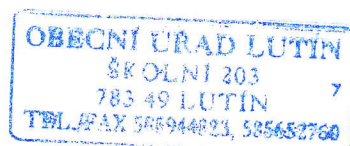 OBECNÍ ÚŘAD LUTÍN
ŠKOLNÍ 203
783 49 LUTÍN 7
TEL./FAX 585944823, 585652760